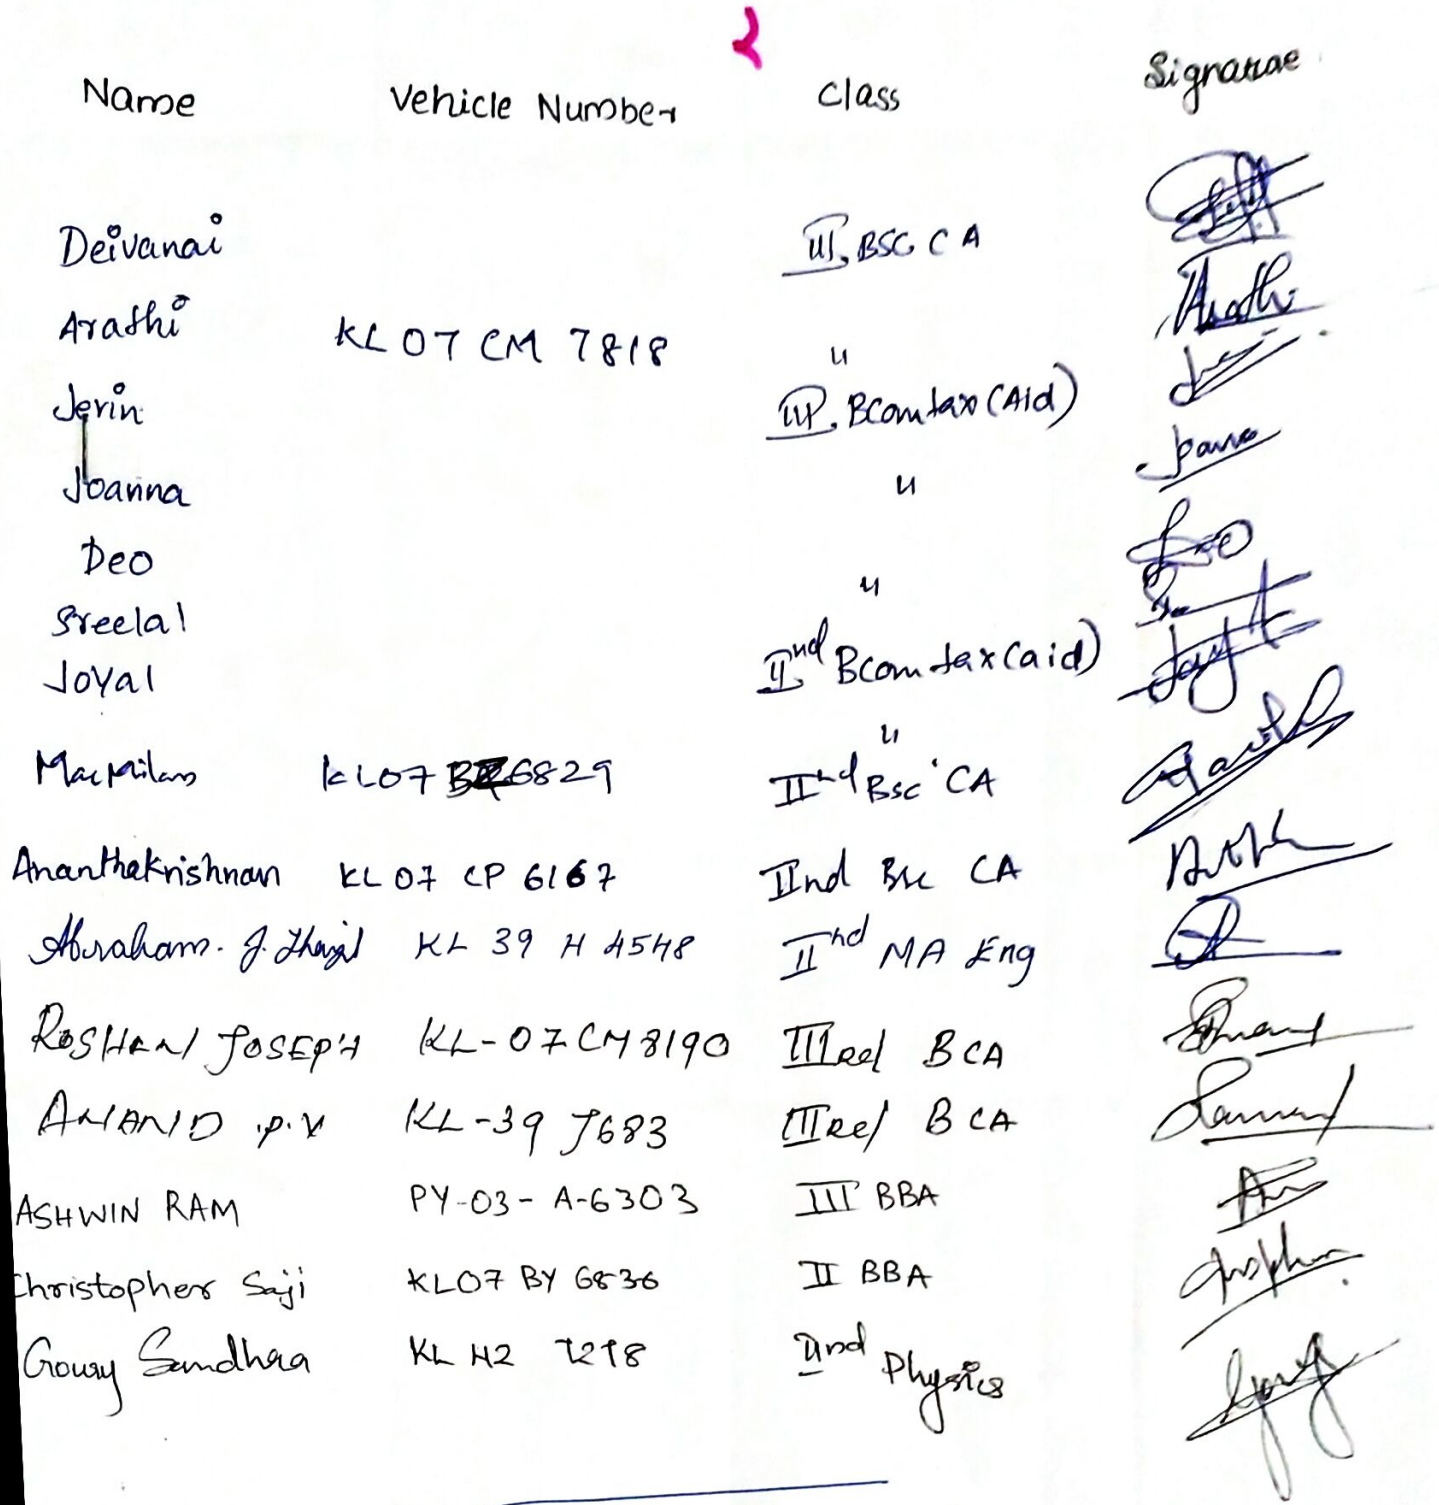 2
Name Vehicle Number Class Signature
Deivanai III, BSC CA
Arathi KL 07 CM 7818 "
Jerin III, BCom tax (Aid)
Joanna "
Deo "
Sreelal IInd BCom tax (aid)
Joyal "
MacMilan KL07 6829 IInd Bsc CA
Ananthakrishnan KL 07 CP 6167 IInd Bsc CA
Abraham. J. KL 39 H 4548 IInd MA Eng
ROSHAN JOSEPH KL-07 CM 8190 IIIrd BCA
ANAND P.V KL-39 J683 IIIrd BCA
ASHWIN RAM PY-03-A-6303 III BBA
Christopher Saji KL07 BY 6836 II BBA
Goury KL H2 7278 IInd Physics